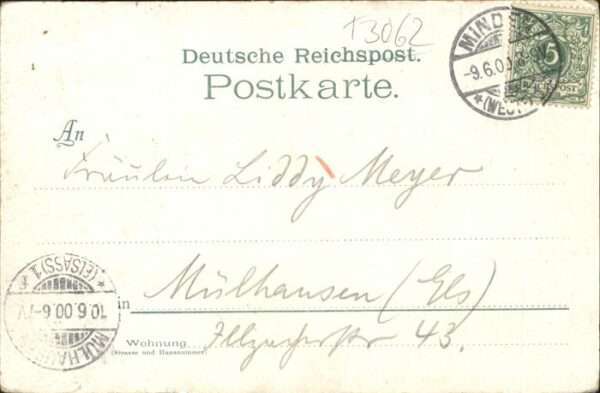 +3062
Deutsche Reichspost.
Postkarte.
MINDEN
-9.6.00.
*(WESTF)
5
REICHSPOST
An
Fräulein Liddy Meyer
*(ELSASS)1*
10.6.00.6-7V
MÜLHAUSEN
in Mülhausen (Els)
Wohnung
(Strasse und Hausnummer)
Illzacherstr 43.